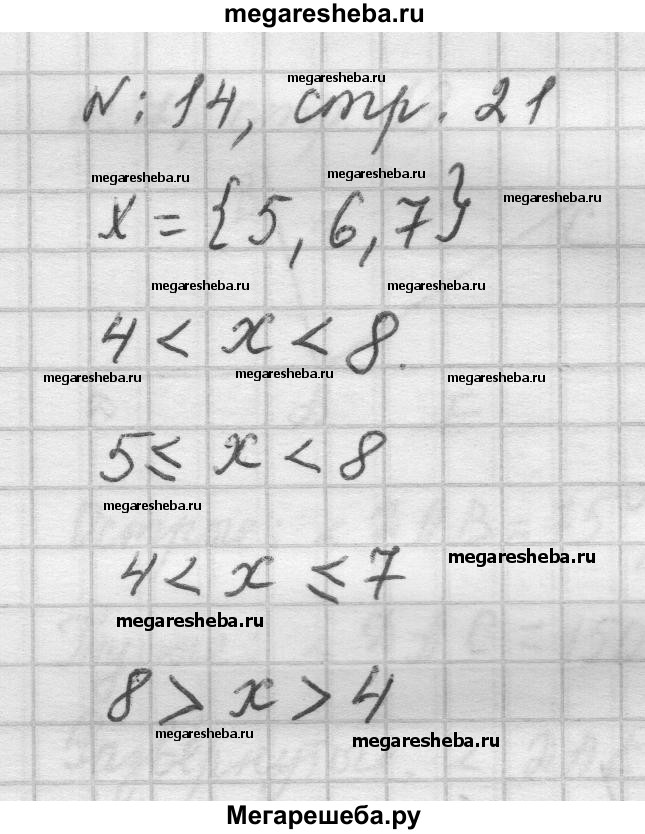 megaresheba.ru
megaresheba.ru
N: 14, стр. 21
megaresheba.ru megaresheba.ru
x = {5, 6, 7} megaresheba.ru
megaresheba.ru megaresheba.ru
4 < x < 8.
megaresheba.ru megaresheba.ru megaresheba.ru
5 ≤ x < 8
megaresheba.ru
4 < x ≤ 7 megaresheba.ru
megaresheba.ru
8 > x > 4
megaresheba.ru megaresheba.ru
Мегарешеба.ру